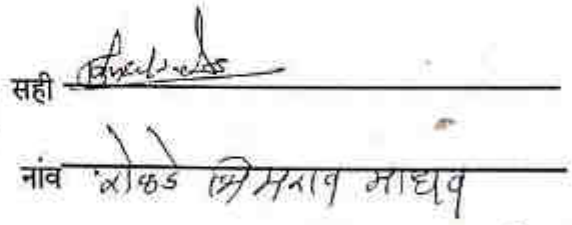 सही
नांव रोकडे भिमराव माधव